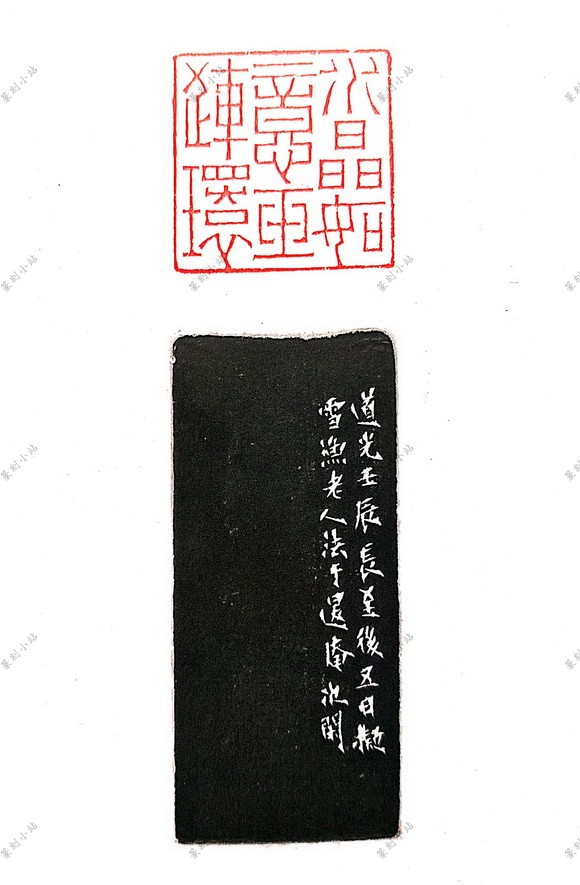 水晶如
意玉
連環
道光壬辰長至後五日擬
雪漁老人法于庵
篆刻小站